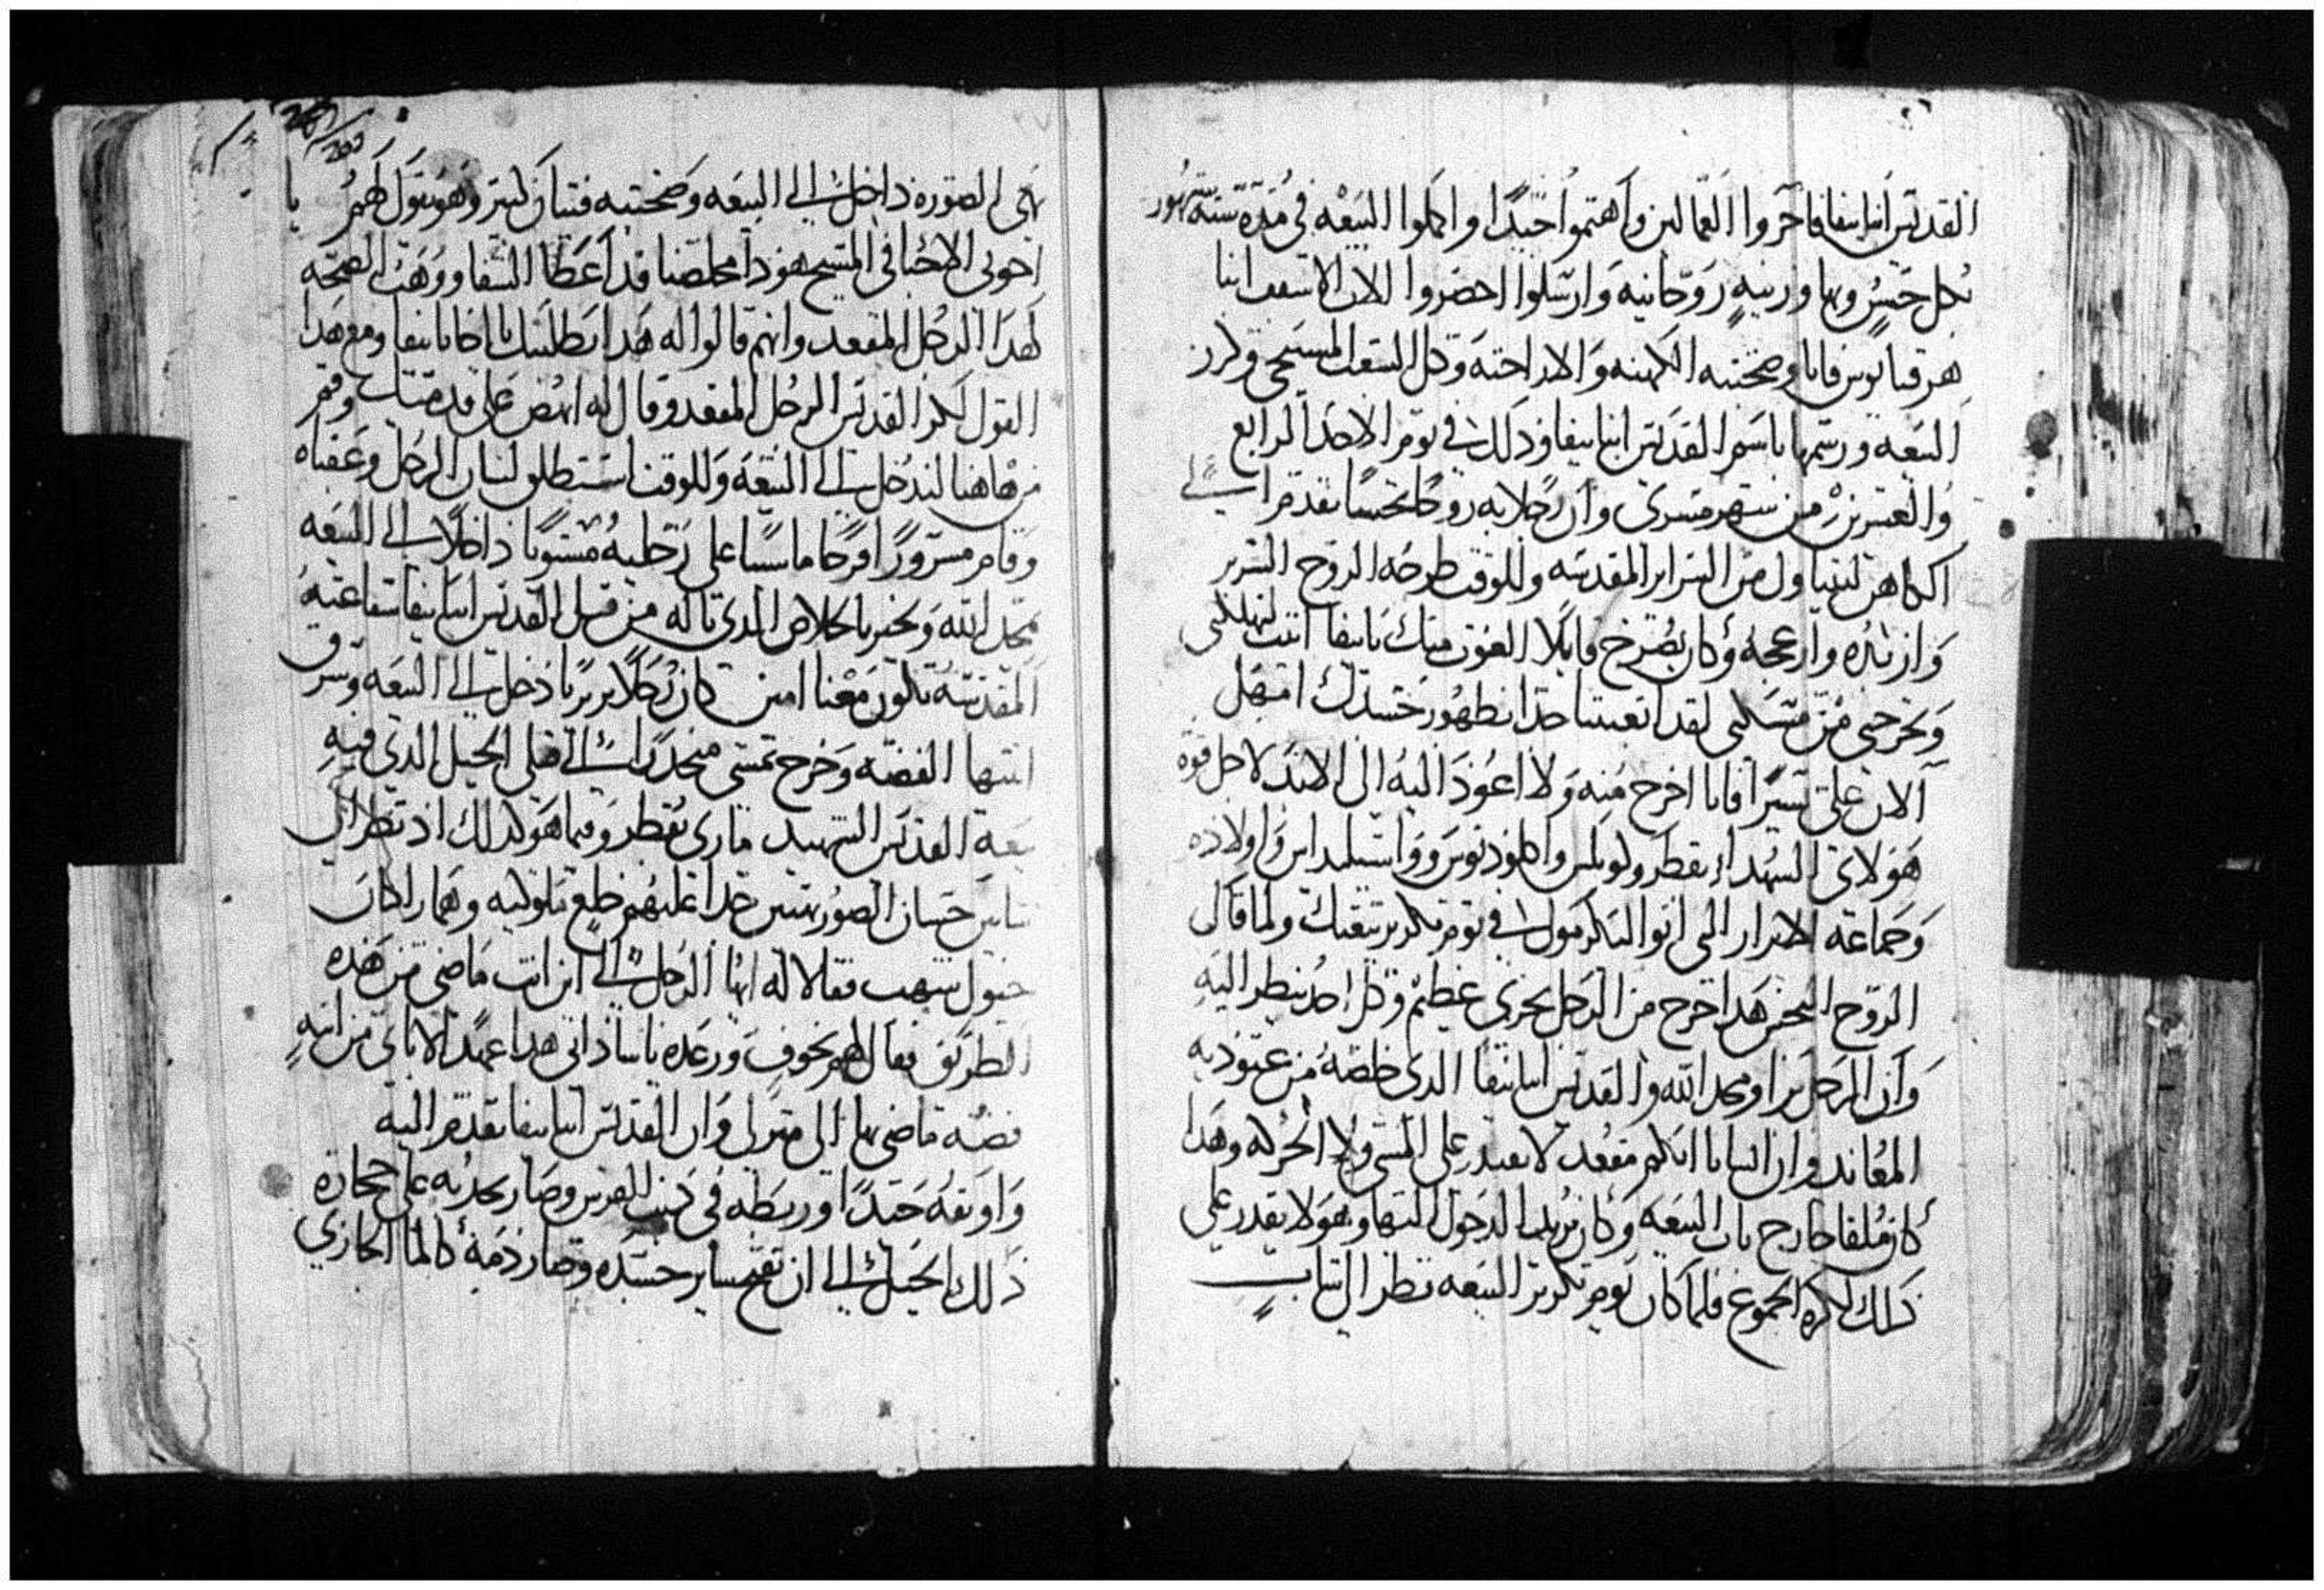 القديس انبا بيفا فاخروا العمالين واهتموا جيدًا واكملوا البيعه في مدة ستة شهور
بكل حسن وبها وزينه روحانيه وارسلوا احضروا الاب الاسقف انبا
هرقبا وصحبته الكهنه والاراخنه وكل الشعب المسيحي وكرز
البيعه ورسمها باسم القديس انبا بيفا وذلك في يوم الاحد الرابع
والعشرين من شهر مسري وان رجلا به روحًا نجسًا تقدم الي
الكاهن ليتناول من السراير المقدسه وللوقت طرحه الروح الشرير
وازبده وازعجه وكان يصرخ قايلًا الغوث منك يا بيفا اتيت لتهلكني
وتخرجني من مسكني لقد اتعبتنا جدا بظهور جسدك امهل
الان علي يسيرًا فانا اخرج منه ولا اعود اليه الي الابد لاجل قوة
هولاي الشهدا بقطر ولوبلس واكلوديوس وواسيليداس واولاده
وجماعة الابرار التي اتوا اليك في يوم تكريز بيعتك ولما قال
الروح النجس هذا خرج من الرجل بخزي عظيم وكل احد ينظر اليه
وان الرجل برا ومجد الله والقديس انبا بيفا الذي خلصه من عبوديه
المعاند وان انسانا ابكم مقعد لا يقدر علي المشي ولا الحركه وهذا
كان ملقا خارج باب البيعه وكان يريد الدخول اليها وهو لا يقدر علي
ذلك لكثرة الجموع فلما كان يوم تكريز البيعه نظر الي شاب
بهي الصوره داخل الي البيعه وصحبته فتيان كتير وهو يقول لهم يا
اخوتي الاحبا في المسيح هوذا مخلصنا قد اعطا الشفا ووهب الصحه
لهذا الرجل المقعد وانهم قالوا له هذا بطلبتك يا اخانا بيفا ومع هذا
القول لكز القديس الرجل المقعد وقال له انهض علي قدميك وقم
من هاهنا لندخل الي البيعه وللوقت استطلق لسان الرجل وعفناه
وقام مسرورًا فرحًا ماشيًا علي رجليه مستويًا داخلًا الي البيعه
يمجد الله ويخبر بالخلاص الذي ناله من قبل القديس انبا بيفا شفاعته
المقدسه تكون معنا امين كان رجلًا بربريًا دخل الي البيعه وسرق
انيتها الفضه وخرج يمشي منحدرًا الي قبلي الجبل الذي فيه
بيعة القديس الشهيد ماري بقطر وفيما هو كذلك اذ نظر الي
شابين حسان الصور بهيين جدا عليهم خلع ملوكيه وهما راكبان
خيول شهب فقالا له ايها الرجل الي اين انت ماضي من هذه
الطريق فقال لهم بخوف ورعده يا ساداتي هذا عبدًا لاناي من انيه
فضه ماضي بها الي منزلي وان القديس انبا بيفا تقدم اليه
واوثقه جيدًا وربطه في ذنب الفرس وصار يجذبه علي حجارة
ذلك الجبل الي ان تقيح ساير جسده وصار دمه كالما الجاري